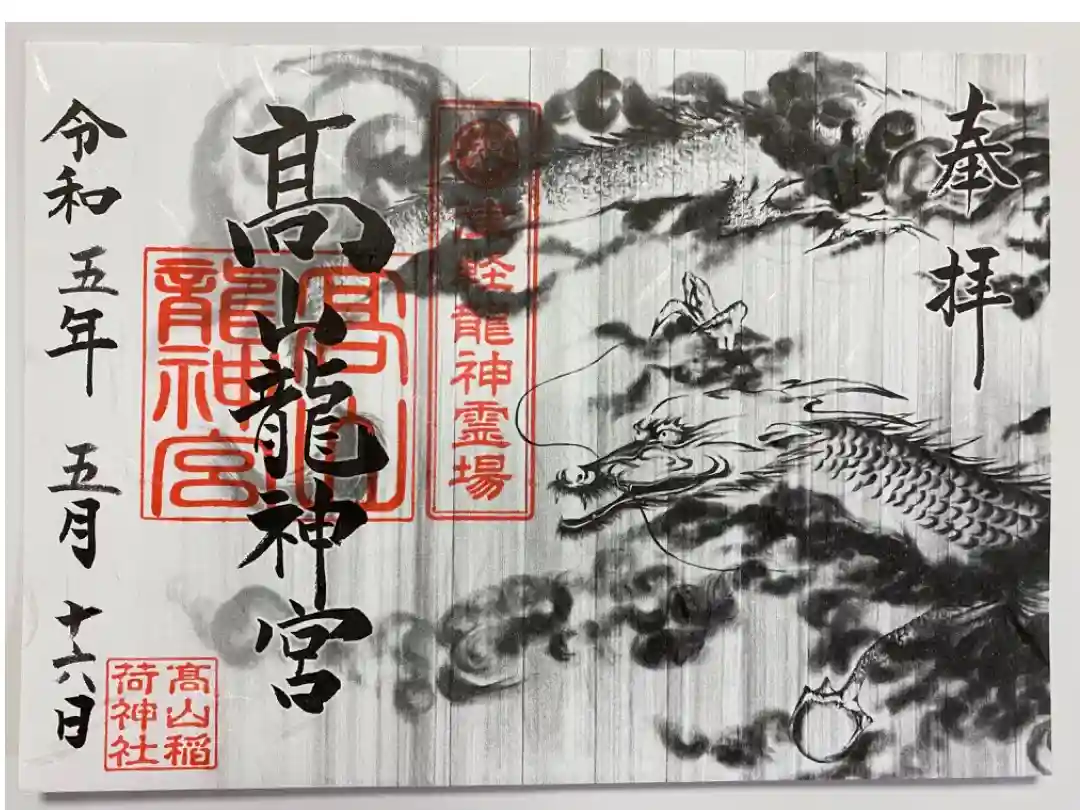 奉拝
津軽龍神霊場
髙山龍神宮
髙山
龍神宮
令和五年 五月 十六日
髙山稲
荷神社